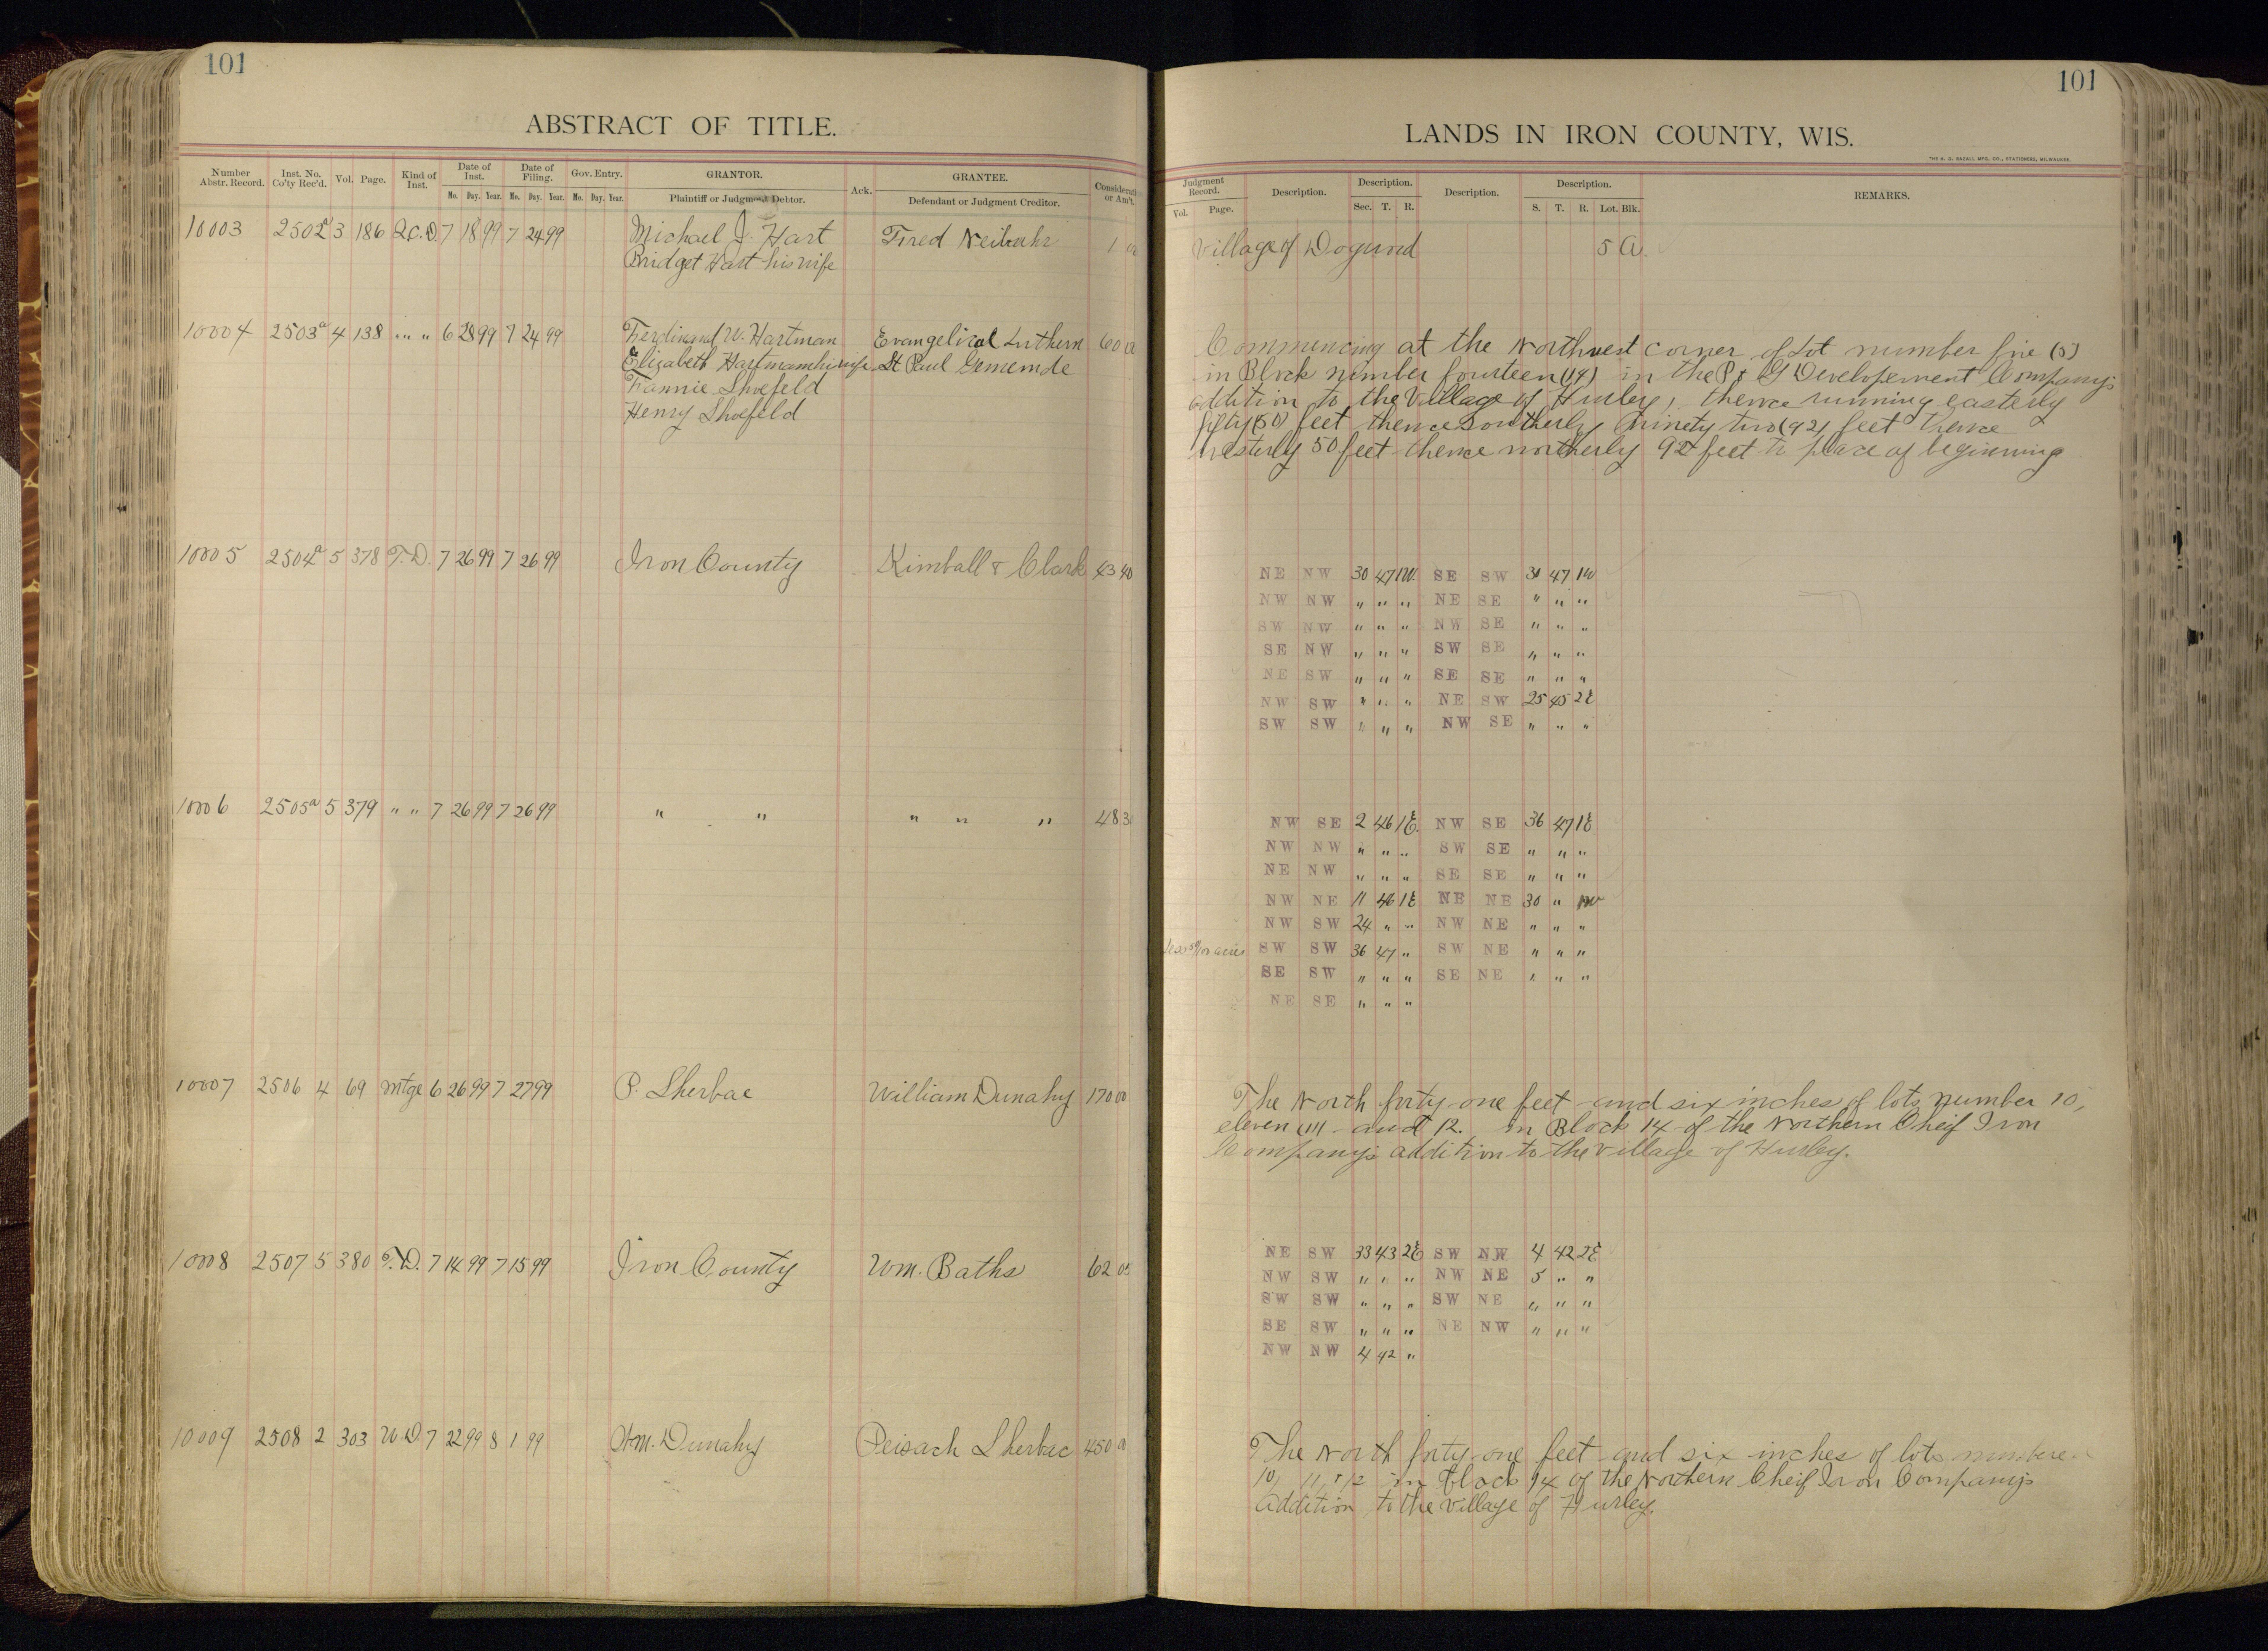 101
ABSTRACT OF TITLE.
Number Abstr. Record. Inst. No. Co'ty Rec'd. Vol. Page. Kind of Inst. Date of Inst. Date of Filing. Gov. Entry. GRANTOR. Ack. GRANTEE. Consideration or Am't.
Mo. Day. Year. Mo. Day. Year. Mo. Day. Year. Plaintiff or Judgment Debtor. Defendant or Judgment Creditor.
10003 2502a 3 186 Q.C.D. 7 18 99 7 24 99 Michael J. Hart Fred Neibuhr 1 00
Bridget Hart his wife
10004 2503a 4 138 " " 6 28 99 7 24 99 Ferdinand W. Hartman Evangelical Luthern 60 00
Elizabeth Hartman his wife St Paul Gemeinde
Fannie Shofeld
Henry Shofeld
10005 2504a 5 378 T.D. 7 26 99 7 26 99 Iron County Kimball & Clark 43 40
10006 2505a 5 379 " " 7 26 99 7 26 99 " " " " " 48 3
10007 2506 4 69 Mtge 6 26 99 7 27 99 P. Sherbac William Dunahy 170 00
10008 2507 5 380 T.D. 7 14 99 7 15 99 Iron County Wm. Baths 62 05
10009 2508 2 303 W.D. 7 22 99 8 1 99 Wm. Dunahy Peisach Sherbac 450 00
101
LANDS IN IRON COUNTY, WIS.
THE H. G. RAZALL MFG. CO., STATIONERS, MILWAUKEE.
Judgment Record. Description. Description. Description. Description. REMARKS.
Vol. Page. Sec. T. R. S. T. R. Lot. Blk.
Village of Dogwood 5 A.
Commencing at the Northwest corner of Lot number five (5)
in Block number fourteen (14) in the P & G Developement Company's
addition to the Village of Hurley, thence running easterly
fifty (50) feet thence Southerly ninety two (92) feet thence
westerly 50 feet thence northerly 92 feet to place of beginning
NE NW 30 47 1W. SE SW 30 47 1W
NW NW " " " NE SE " " "
SW NW " " " NW SE " " "
SE NW " " " SW SE " " "
NE SW " " " SE SE " " "
NW SW " " " NE SW 25 45 2E
SW SW " " " NW SE " " "
NW SE 2 46 1E. NW SE 36 47 1E
NW NW " " " SW SE " " "
NE NW " " " SE SE " " "
NW NE 11 46 1E NE NE 30 " 1W
NW SW 24 " " NW NE " " "
acres SW SW 36 47 " SW NE " " "
SE SW " " " SE NE " " "
NE SE " " "
The North forty-one feet and six inches of lots number 10,
eleven (11) and 12. in Block 14 of the Northern Cheif Iron
Company's addition to the village of Hurley.
NE SW 33 43 2E SW NW 4 42 2E
NW SW " " " NW NE 5 " "
SW SW " " " SW NE " " "
SE SW " " " NE NW " " "
NW NW 4 42 "
The North forty-one feet and six inches of lots numbered
10, 11, & 12 in block 14 of the Northern Cheif Iron Company's
Addition to the Village of Hurley.